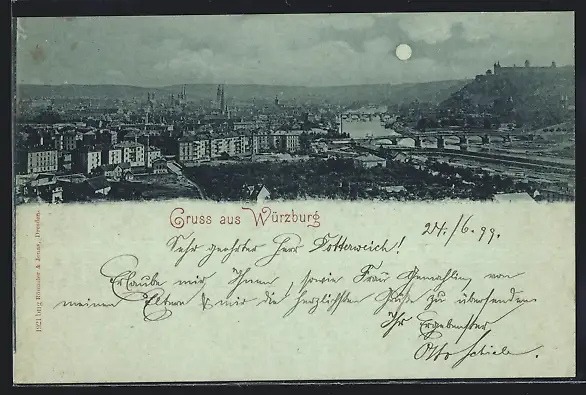 Gruss aus Würzburg
24./6.99.
Sehr geehrter Herr Fotterweich!
Erlaube mir Ihnen, sowie Frau Gemahlin, von
meinen Eltern & mir die herzlichsten Grüße zu übersenden
Ihr Ergebenster
Otto Schiele.
1921 Dresden.